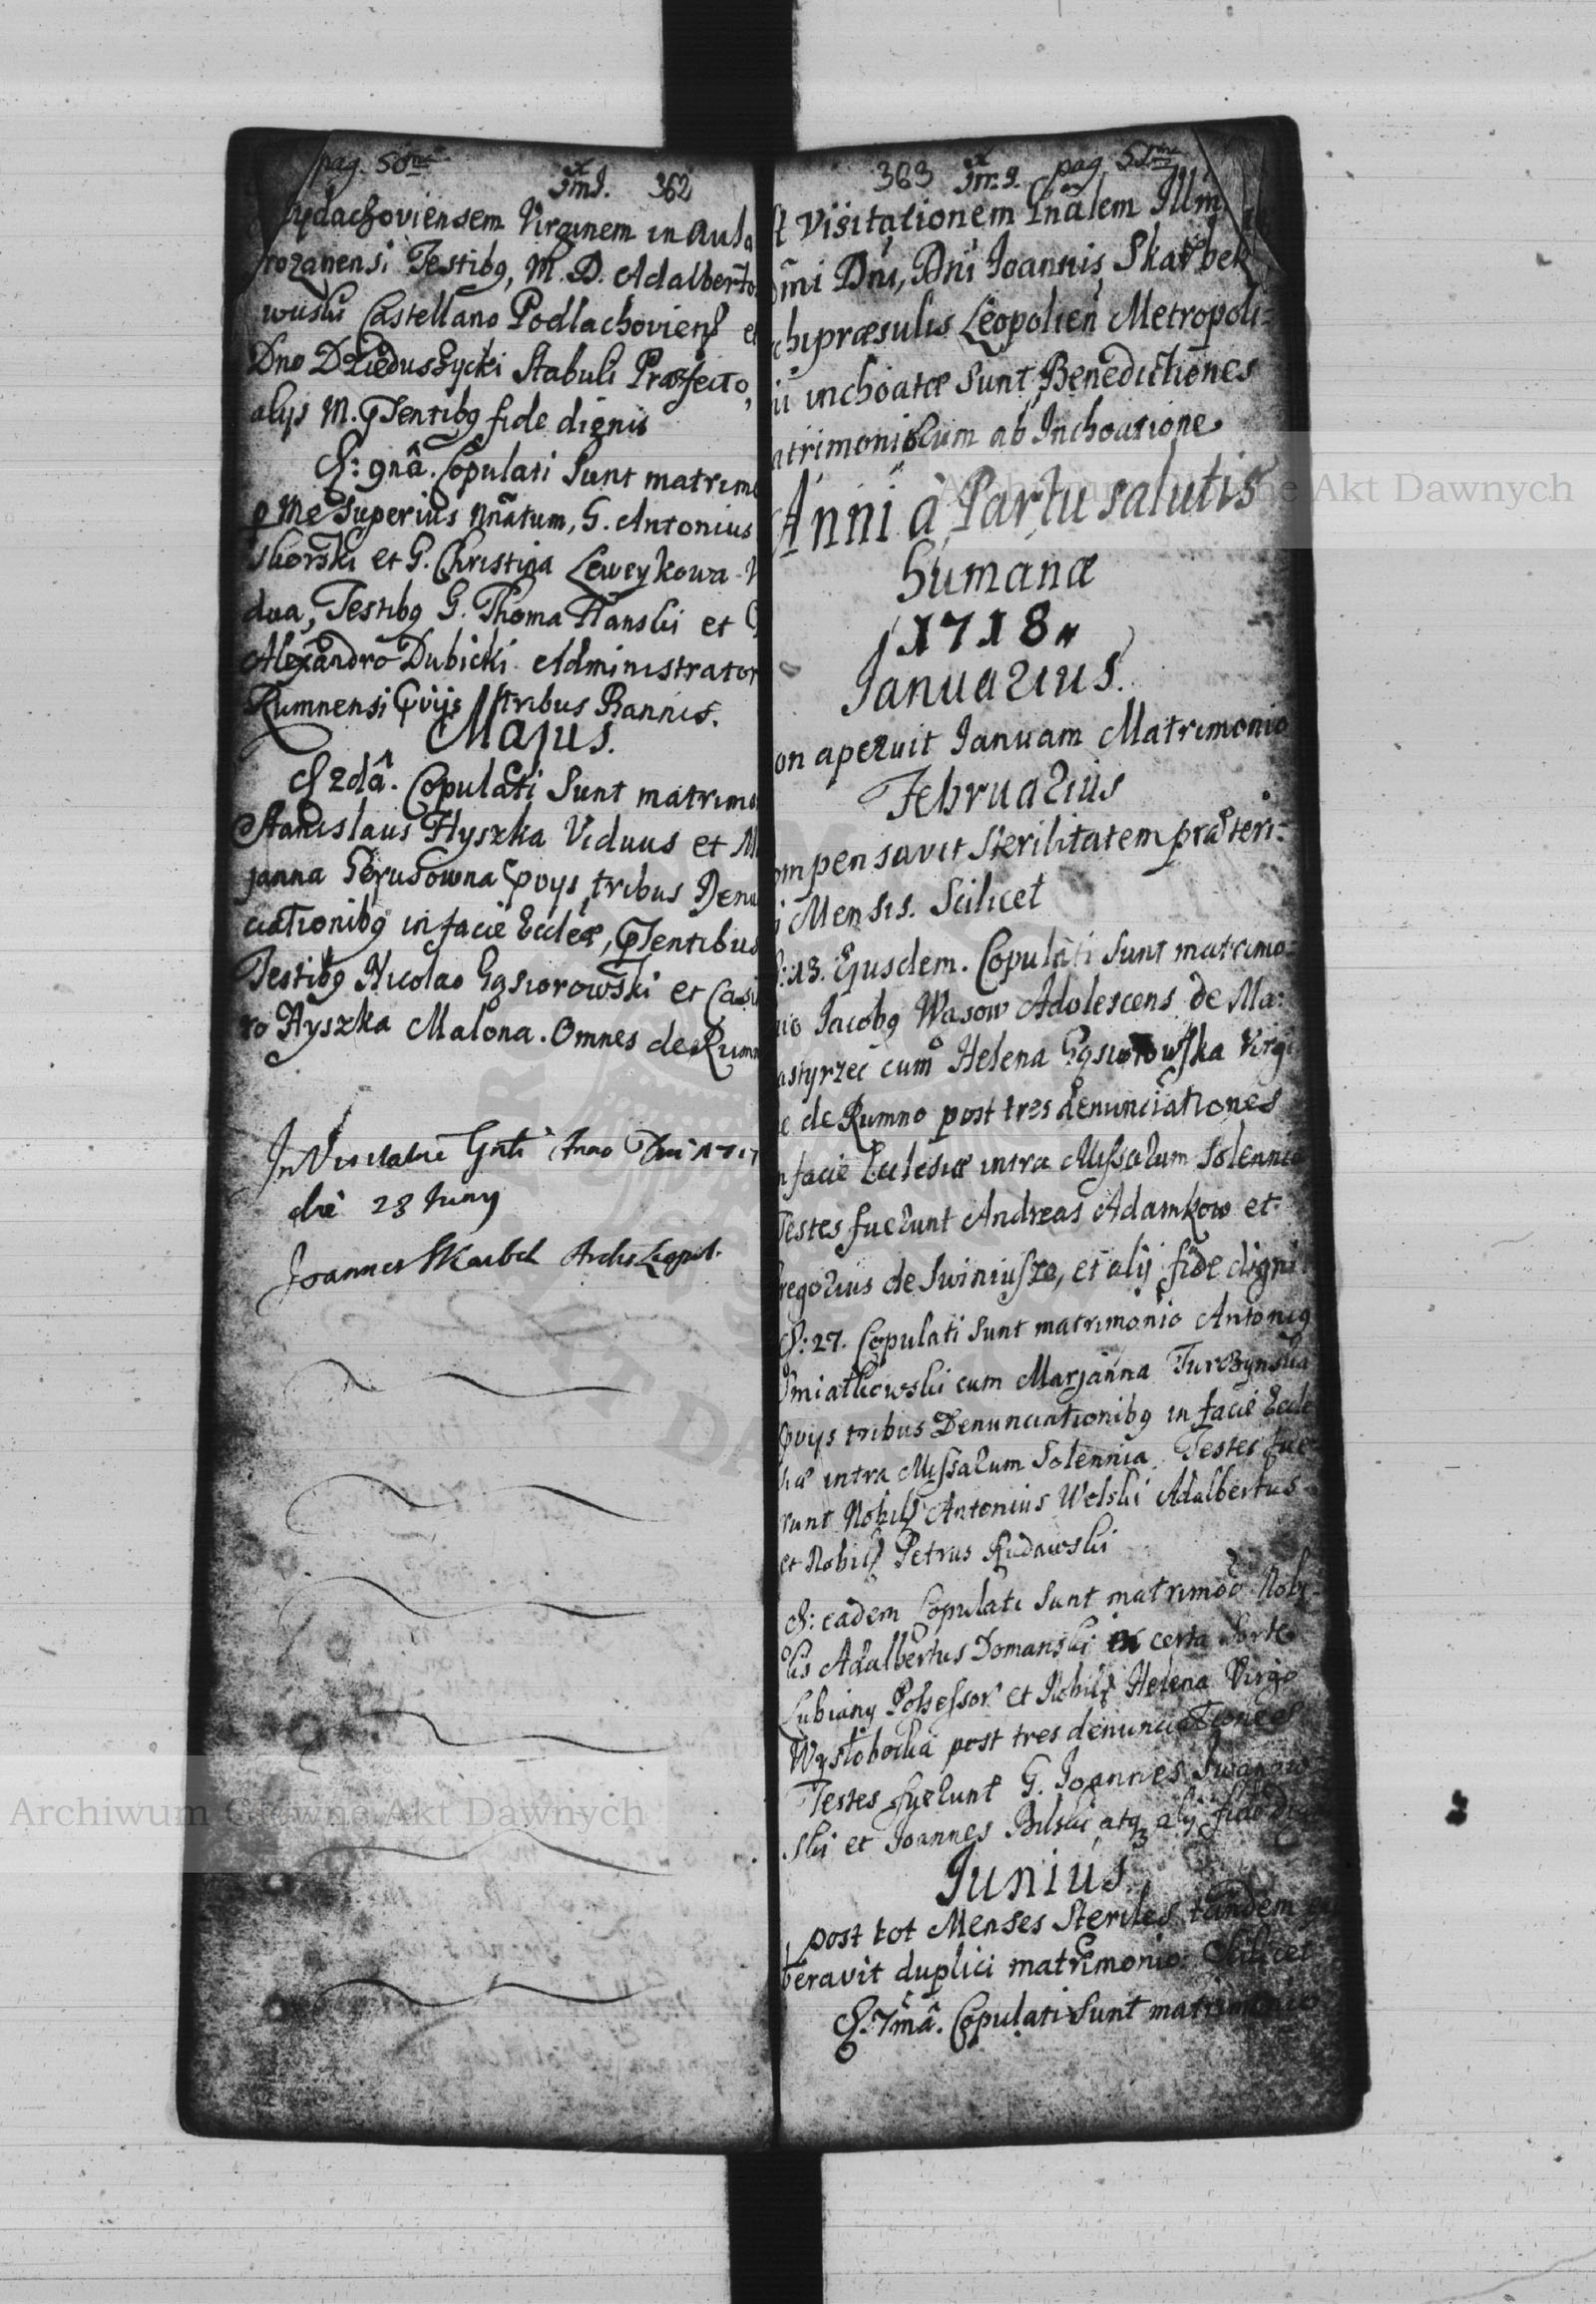 pag. 50
JmJ. 362
ydachoviensem Virginem in Aula
rozanensi Testibg, M. D. Adalberto
wuski Castellano Podlachoviens et
Dno Dzieduszycki Stabuli Præfecto,
alijs M. Psentibg fide dignis
D: 9nâ. Copulati Sunt matrimo
p Me Superius Nnatum, G. Antonius
skorski et G. Christina Leweykowa V
dua, Testibg G. Thoma Hanski et G
Alexandro Dubicki Administrator
Rumnensi Pvijs tribus Bannis.
Majus.
D 2dâ. Copulati Sunt matrimo
Stanislaus Hyszka Viduus et M
janna Pvys tribus Denu
ciationibg in facie Eccleæ, Psentibus
Testibg Nicolao Gąsiorowski et Casi
ro Hyszka Malona. Omnes de Rumn
In Visitatne Gnli Anno Dni 1717
die 28 Juny
Joannes Skarbek Archs Leopol.
363 JmJ. pag 51
t Visitationem Gnalem Illm
mi Dni, Dni Joannis Skarbek
chipræsulis Leopolien Metropoli=
ii inchoatæ Sunt Benedictiones
atrimonioium ab Inchoatione
Anni à Partu salutis
humanæ
1718
Januarius.
on aperuit Januam Matrimonio
Februarius
ompensavit Sterilitatem præteri=
i Mensis. Scilicet
D:13. Ejusdem. Copulati Sunt matrimo=
nio Jacobg Wasow Adolescens de Ma:
astyrzec cum Helena Gąsiorowska Virgi
e de Rumno post tres denunciationes
n facie Ecclesiæ intra Missarum Solennia
Testes fuerunt Andreas Adamkow et
regorius de Swiniusza, et alij fide digni
D:27. Copulati Sunt matrimonio Antonig
Smiatkowski cum Marjanna Turczynska
Pvijs tribus Denunciationibg in facie Eccle
siæ intra Missarum Solennia. Testes fue
runt Nobils Antonius Welski Adalbertus
et Nobils Petrus Rudawski
D: eadem Copulati Sunt matrimoo Nobi=
lis Adalbertus Domanski in certa Sorte
Lubiany Possessor et Nobils Helena Virgo
Wysłobocka post tres denunciationes
Testes fuerunt G. Joannes Iwanow
ski et Joannes Bilski, atq alij fide dig
Junius
post tot Menses Steriles tandem
beravit duplici matrimonio: Scilicet
D. 7mâ. Copulati Sunt matrimonio
Archiwum Główne Akt Dawnych
Archiwum Główne Akt Dawnych